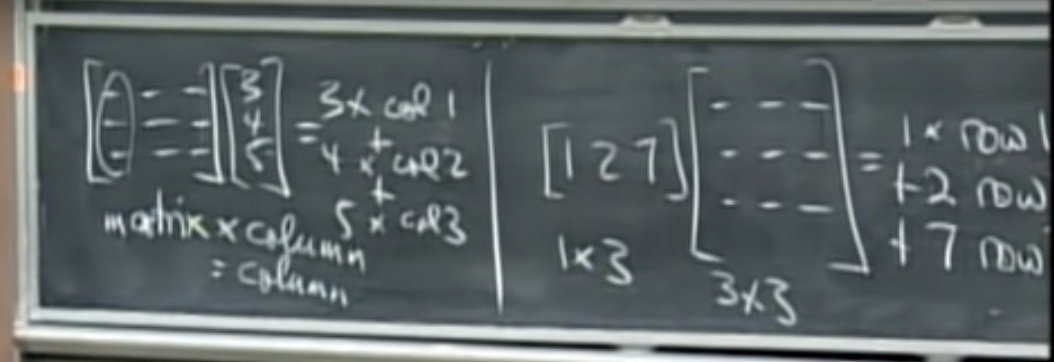 [ - - - ] [ 3 ] = 3 x col 1
[ - - - ] [ 4 ] + 4 x col 2
[ - - - ] [ 5 ] + 5 x col 3
matrix x column
= column
[1 2 7] [ - - - ] = 1 x row 1
[ - - - ] +2 row
[ - - - ] +7 row
1x3
3x3